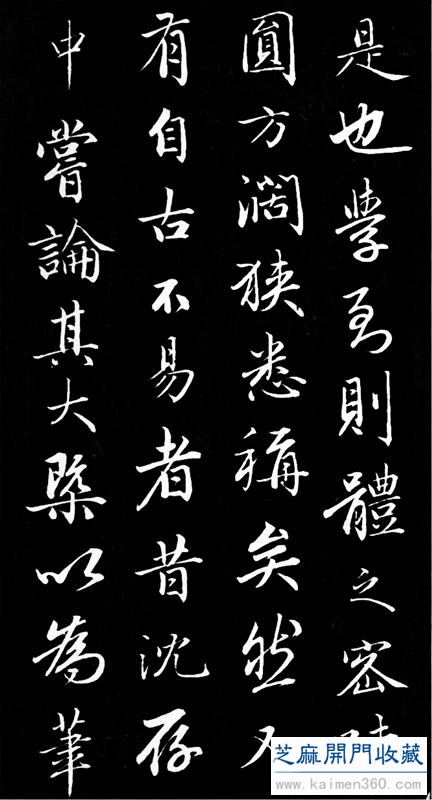 是也學至則體之密
圓方濶狹悉稱矣然又
有自古不易者昔沈存
中嘗論其大槩以為筆
芝麻開門收藏
www.kaimen360.com